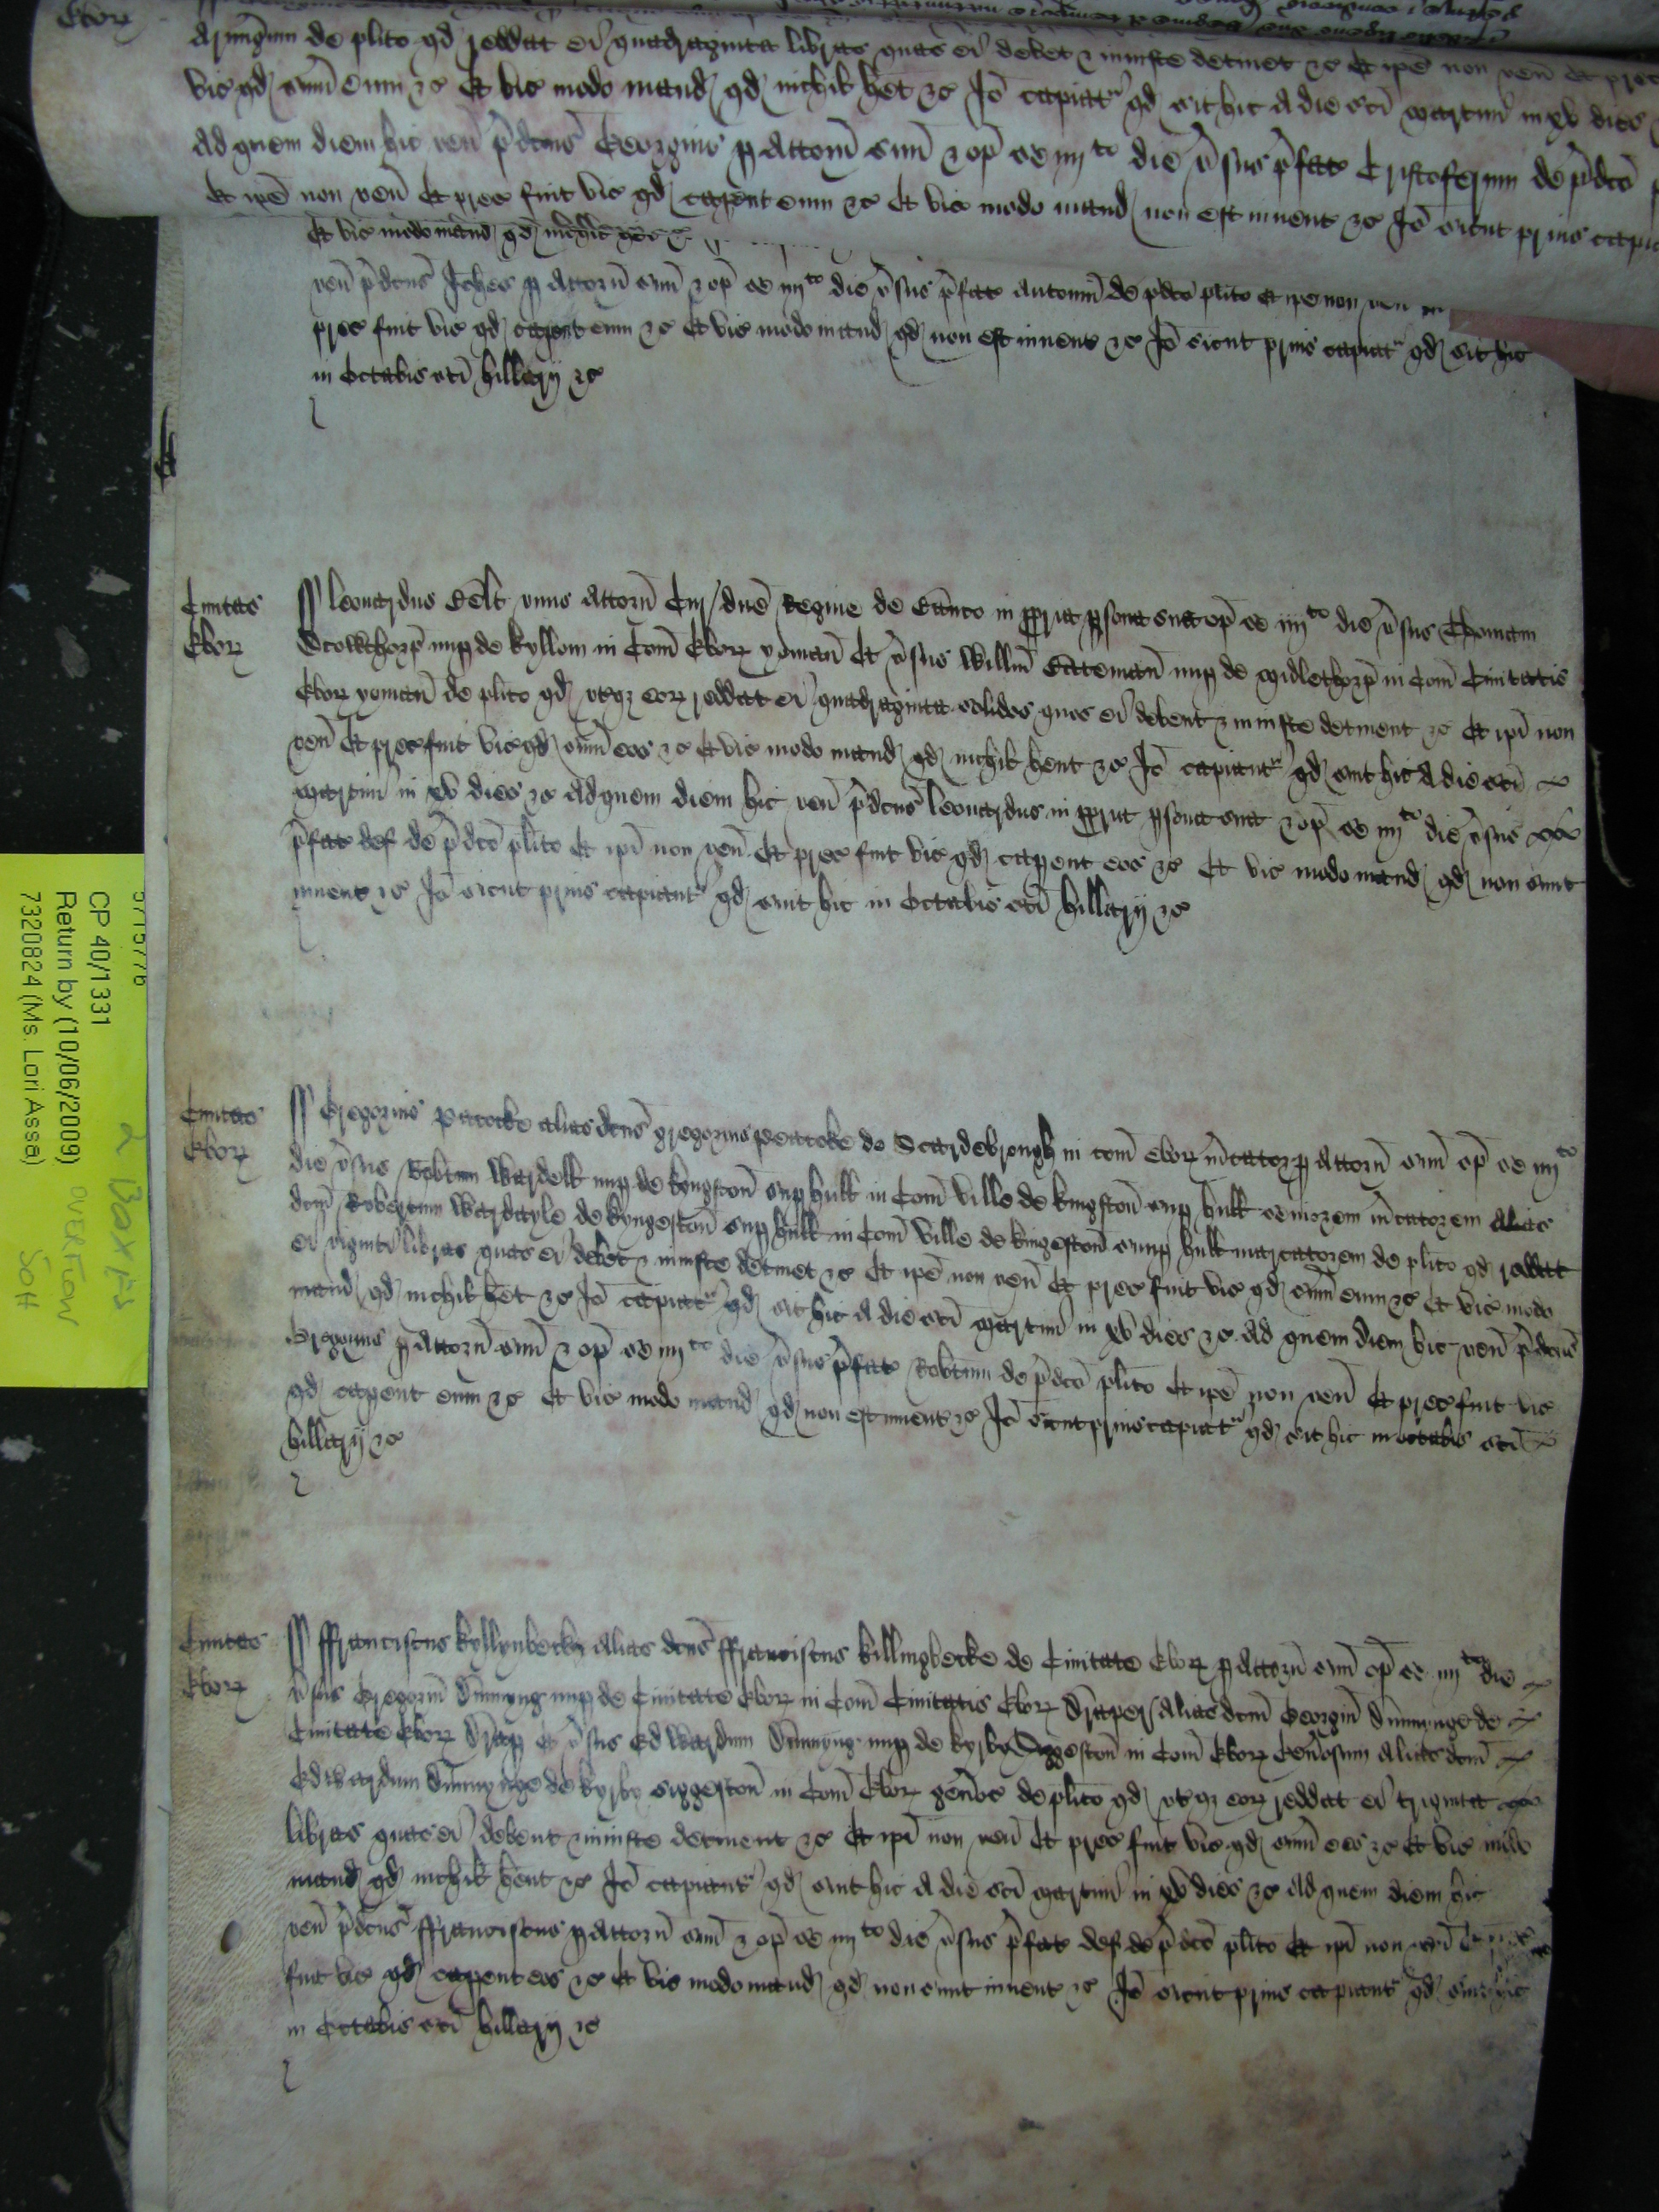 Ebor
Armigerum de plito qd reddat ei quadraginta libras quas ei debet & iniuste detinet &c Et ipe non ven Et prec
vic qd sum eum &c Et vic modo mand qd nichil het &c Io capiatr qd sit hic A die sci Martini in xv dies
Ad quem diem hic ven pdcus Georgius p Attorn suu & op se iiij to die vsus pfat Cristoferum de pdco
et ipe non ven Et prec fuit vic qd caperet eum &c Et vic modo mand non est invent &c Io sicut prius capia
Et vic modo mand qd nichil het &c
ven pdcus Johes p Attorn suu & op se iiij to die vsus pfat Antoniu de pdco plito et ipe non ven
prec fuit vic qd caperet eum &c Et vic modo mand qd non est invent &c Io sicut prius capiatr qd sit hic
in Octabis sci hillarij &c
Civitas
Ebor
leonardus Belt unus Attorn Cur dne Regine de Banco in ppria psona sua op se iiij to die vsus Thomam
Scowthorp nup de kyllom in Com Ebor yoman Et vsus Willm Bateman nup de Midlethorp in Com Civitatis
Ebor yoman de plito qd utqz eor reddat ei quadraginta solidos quos ei debent & iniuste detinent &c Et ipi non
ven Et prec fuit vic qd sum eos &c Et vic modo mand qd nichil hent &c Io capiantr qd sint hic A die sci
Martini in xv dies &c Ad quem diem hic ven pdcus leonardus in ppria psona sua & op se iiij to die vsus
pfat def de pdco plito Et ipi non ven Et prec fuit vic qd caperent eos &c Et vic modo mand qd non sunt
invent &c Io sicut prius capiantr qd sint hic in Octabis sci hillarij &c
Civitas
Ebor
Gregorius Pacocke alias dcus gregorius Peacoke de Scardebrough in com Ebor mcator p Attorn suu op se iiij to
die vsus Robtum Wardell nup de kyngston sup hull in Com ville de kingston sup hull seniorem mcatorem Alias
dcm Robertum Wardayle de kyngeston sup hull in Com ville de kingeston sup hull marcatorem de plito qd reddat
ei viginti libras quas ei debet & iniuste detinet &c Et ipe non ven Et prec fuit vic qd sum eum &c Et vic modo
mand qd nichil het &c Io capiatr qd sit hic A die sci Martini in xv dies &c Ad quem diem hic ven pdcus
Gregorius p Attorn suu & op se iiij to die vsus pfat Robtum de pdco plito Et ipe non ven Et prec fuit vic
qd caperent eum &c Et vic modo mand qd non est invent &c Io sicut prius capiatr qd sit hic in octabis sci
hillarij &c
Civitas
Ebor
ffranciscus kyllynbeck Alias dcus ffranciscus killingbecke de Civitate Ebor p Attorn suu op se iiij to die
vsus Gregoriu Dunnyng nup de Civitate Ebor in Com Civitatis Ebor Draper Alias dcm Georgiu Dunnynge de
Civitate Ebor Drap Et vsus Edwardum Dunnyng nup de kyrby Syggeston in Com Ebor Genosum Alias dcm
Edwardum Dunnynge de kyrby siggeston in Com Ebor de plito qd utqz eor reddat ei triginta
libras quas ei debent & iniuste detinent &c Et ipi non ven Et prec fuit vic qd sum eos &c Et vic modo
mand qd nichil hent &c Io capiantr qd sint hic A die sci Martini in xv dies &c Ad quem diem hic
ven pdcus ffranciscus p Attorn suu & op se iiij to die vsus pfat def de pdco plito Et ipi non ven Et prec
fuit vic qd caperent eos &c Et vic modo mand qd non sunt invent &c Io sicut prius capiantr qd sint hic
in Octabis sci hillarij &c
CP 40/1331
Return by (10/06/2009)
7320824 (Ms. Lori Assa)
2 Box FS
OVERFLOW
Soft